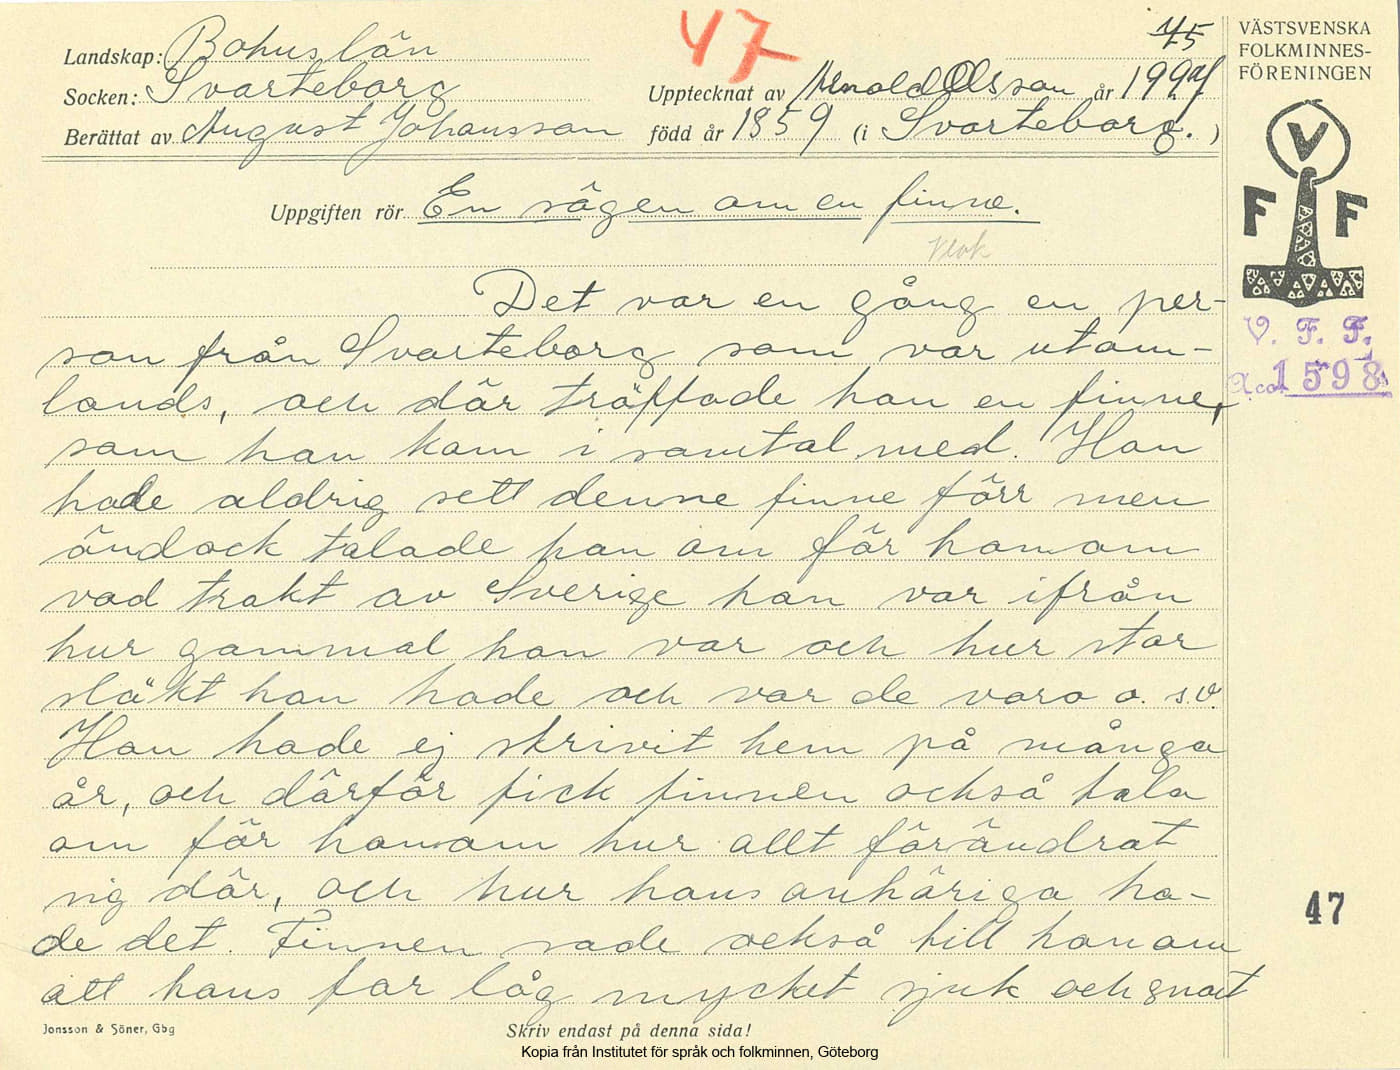 47
75
Landskap: Bohuslän
Socken: Svarteborg
Upptecknat av Arnold Olsson år
Berättat av August Johansson född år 1859 (i Svarteborg. )
Uppgiften rör En sägen om en finne.
Det var en gång en per-
son från Svarteborg som var utom-
lands, och där träffade han en finne,
som han kom i samtal med. Han
hade aldrig sett denne finne förr men
ändock talade han om för honom
vad trakt av Sverige han var ifrån
hur gammal han var och hur stor
släkt han hade och var de voro o. s.v.
Han hade ej skrivit hem på många
år, och därför fick finnen också tala
om för honom hur allt förändrat
sig där, och hur hans anhöriga ha-
de det. Finnen sade också till honom
att hans far låg mycket sjuk och snart
Jonsson & Söner, Gbg
Skriv endast på denna sida!
Kopia från Institutet för språk och folkminnen, Göteborg
VÄSTSVENSKA
FOLKMINNES-
FÖRENINGEN
V
F F
V. F. F.
Acc. 1598
47